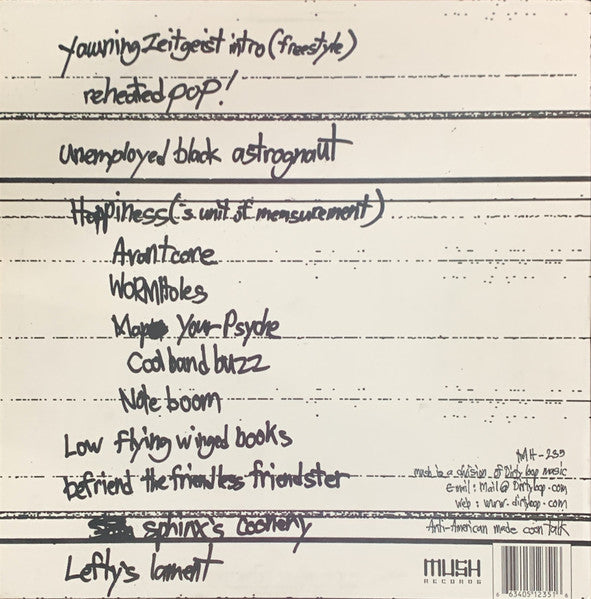 yawning zeitgeist intro (freestyle)
reheated pop!
unemployed black astrognaut
Happiness ('s unit of measurement)
Avantcore
WORMHoles
Map Your Psyche
Cool band buzz
Note boom
Low flying winged books
befriend the friendless friendster
sphinx's coonery
Lefty's lament
MH-235
mush is a division of Dirty loop music
E-mail : Mail@Dirtyloop.com
web : www.dirtyloop.com
Anti-American made coon talk
MUSH
RECORDS
6 63405 12351 6